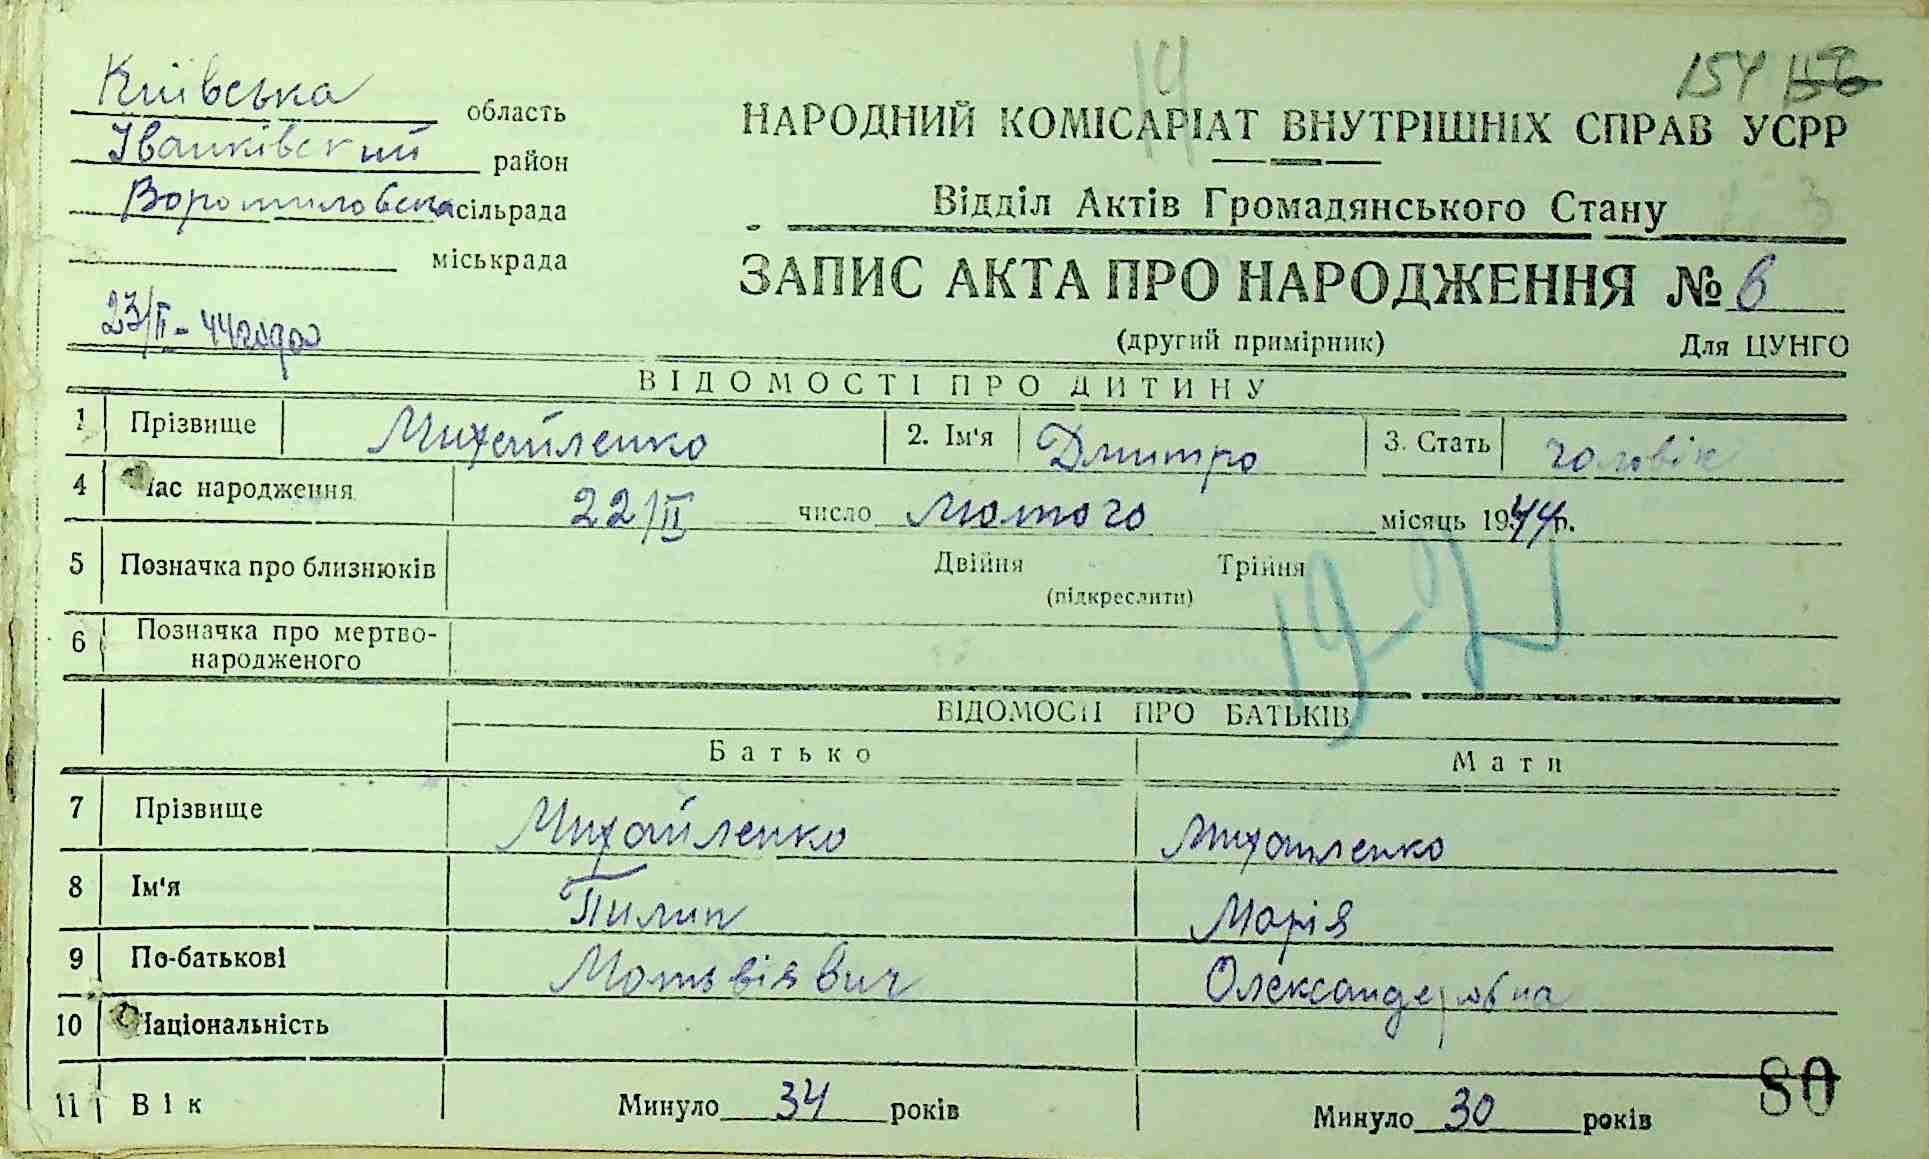 14
154 156
Київська область
Іванківский район
Ворошиловска сільрада
міськрада
23/II-44 года
НАРОДНИЙ КОМІСАРІАТ ВНУТРІШНІХ СПРАВ УСРР
Відділ Актів Громадянського Стану
ЗАПИС АКТА ПРО НАРОДЖЕННЯ № 6
(другий примірник) Для ЦУНГО
ВІДОМОСТІ ПРО ДИТИНУ
1 Прізвище Михайленко 2. Ім'я Дмитро 3. Стать чоловік
4 Час народження 22/II число лютого місяць 1944 р.
5 Позначка про близнюків Двійня Трійня
(підкреслити)
6 Позначка про мертво-
народженого
ВІДОМОСТІ ПРО БАТЬКІВ
Батько Мати
7 Прізвище Михайленко Михайленко
8 Ім'я Пилип Марія
9 По-батькові Мотьвіявич Олександеровна
10 Національність
11 Вік Минуло 34 років Минуло 30 років
80